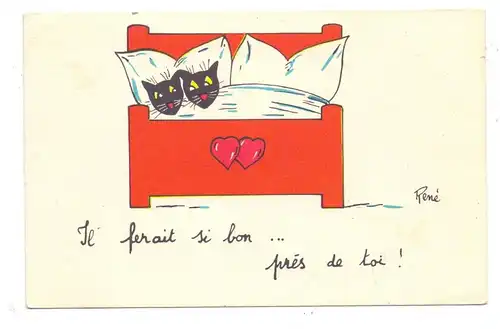 René
Il ferait si bon ...
prés de toi !